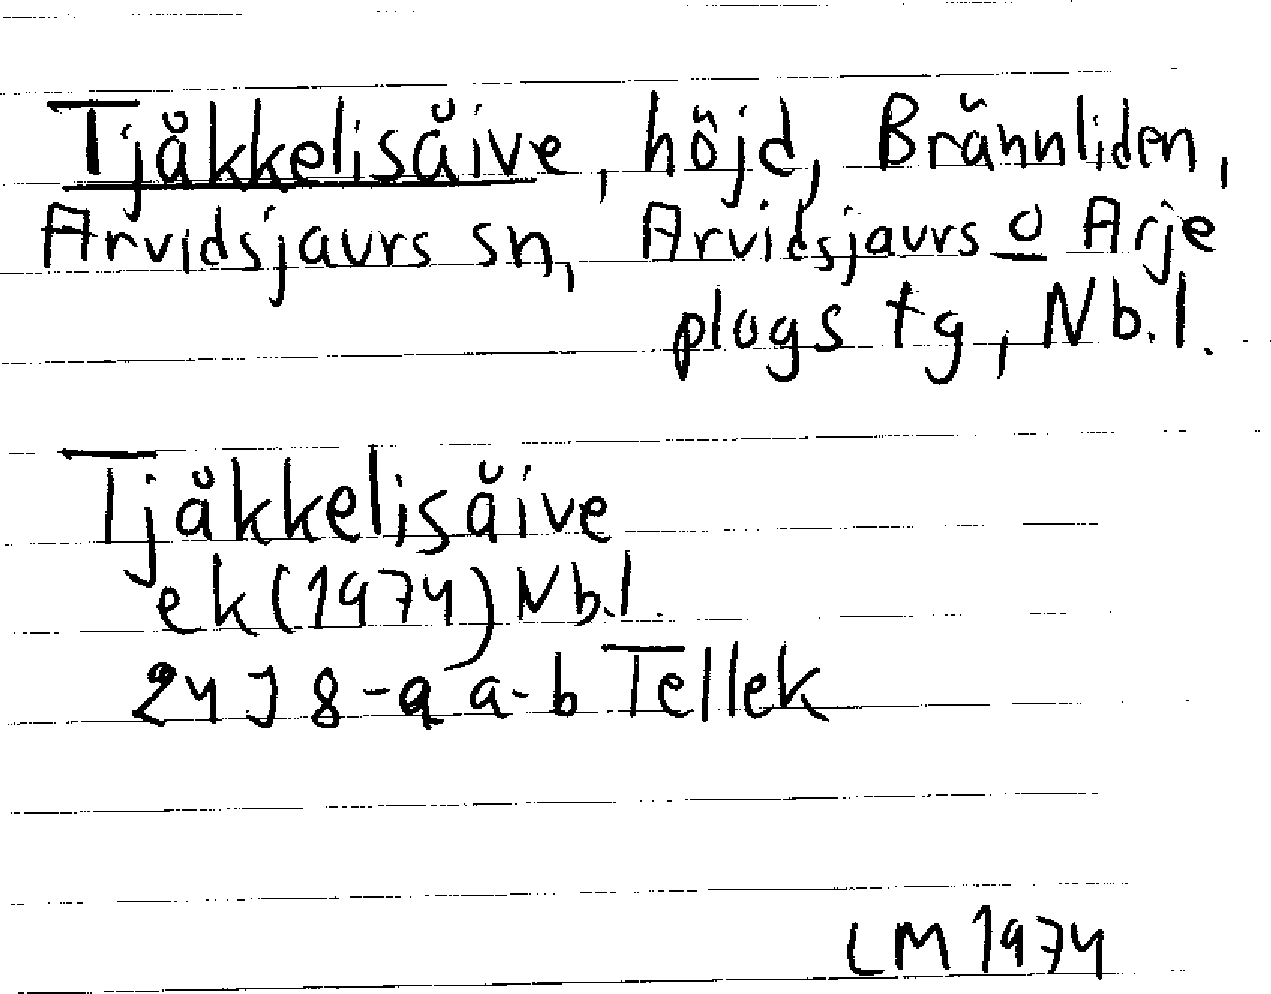 Tjåkkelisåive, höjd, Brännliden,
Arvidsjaurs sn, Arvidsjaurs o Arje
plogs tg, Nb.l.
Tjåkkelisåive
ek(1974) Nb.l.
24J 8-9 a-b Tellek
LM 1974